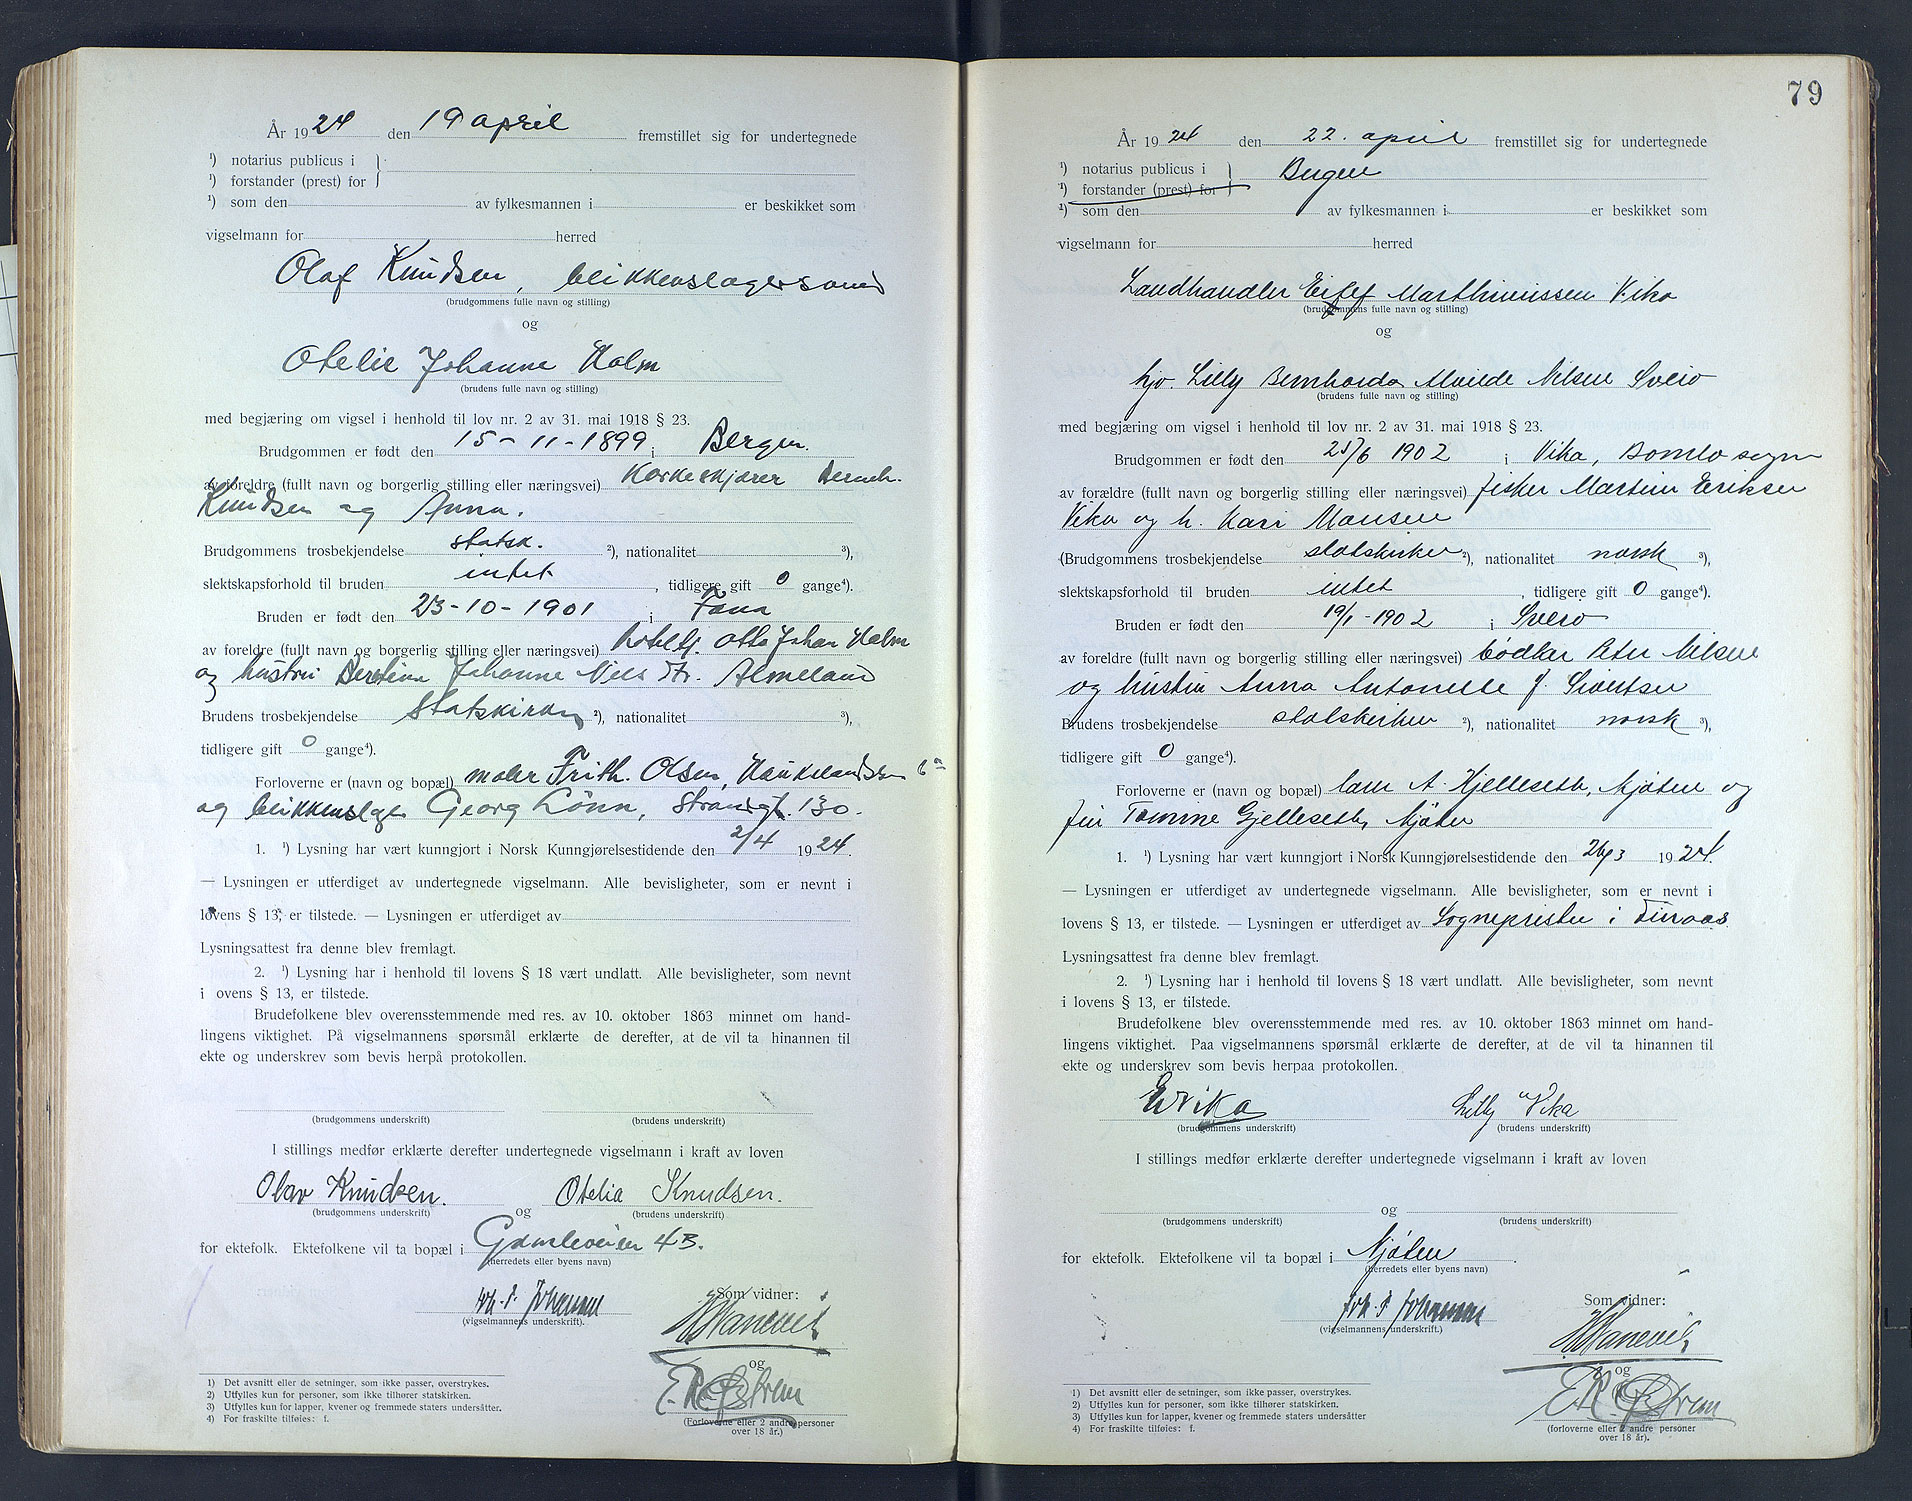 År 1924 den 19 april fremstillet sig for undertegnede
¹) notarius publicus i
¹) forstander (prest) for
¹) som den av fylkesmannen i er beskikket som
vigselmann for herred
Olaf Knudsen, blikkenslagersvend
(brudgommens fulle navn og stilling)
og
Otelie Johanne Holm
(brudens fulle navn og stilling)
med begjæring om vigsel i henhold til lov nr. 2 av 31. mai 1918 § 23.
Brudgommen er født den 15-11-1899 i Bergen.
av foreldre (fullt navn og borgerlig stilling eller næringsvei) Korkeskjærer Bernh.
Knudsen og Anna.
Brudgommens trosbekjendelse statsk. ²), nationalitet ³),
slektskapsforhold til bruden intet, tidligere gift 0 gange⁴).
Bruden er født den 23-10-1901 i Fana
av foreldre (fullt navn og borgerlig stilling eller næringsvei) Otto Johan Holm
og hustru Bertine Johanne Nels dtr. Almeland
Brudens trosbekjendelse Statskirken ²), nationalitet ³),
tidligere gift 0 gange⁴).
Forloverne er (navn og bopæl) maler Frith. Olsen, Haukelandsvn 6a
og blikkenslager Georg Lönn, Strandgt. 130.
1. ¹) Lysning har vært kunngjort i Norsk Kunngjørelsestidende den 2/4 1924.
— Lysningen er utferdiget av undertegnede vigselmann. Alle bevisligheter, som er nevnt i
lovens § 13, er tilstede. — Lysningen er utferdiget av
Lysningsattest fra denne blev fremlagt.
2. ¹) Lysning har i henhold til lovens § 18 vært undlatt. Alle bevisligheter, som nevnt
i ovens § 13, er tilstede.
Brudefolkene blev overensstemmende med res. av 10. oktober 1863 minnet om hand-
lingens viktighet. På vigselmannens spørsmål erklærte de derefter, at de vil ta hinannen til
ekte og underskrev som bevis herpå protokollen.
(brudgommens underskrift) (brudens underskrift)
I stillings medfør erklærte derefter undertegnede vigselmann i kraft av loven
Olav Knudsen. og Otelia Knudsen.
(brudgommens underskrift) (brudens underskrift)
for ektefolk. Ektefolkene vil ta bopæl i Gamleveien 4B.
(herredets eller byens navn)
Som vidner:
(vigselmannens underskrift).
og
(Forloverne eller 2 andre personer
over 18 år.)
1) Det avsnitt eller de setninger, som ikke passer, overstrykes.
2) Utfylles kun for personer, som ikke tilhører statskirken.
3) Utfylles kun for lapper, kvener og fremmede staters undersåtter.
4) For fraskilte tilføies: f.
79
År 1924 den 22. april fremstillet sig for undertegnede
¹) notarius publicus i Bergen
¹) forstander (prest) for
¹) som den av fylkesmannen i er beskikket som
vigselmann for herred
Landhandler Eilef Marthinussen Vika
(brudgommens fulle navn og stilling)
og
hjv. Lilly Bernharda Alvilde Nilsen Sveio
(brudens fulle navn og stilling)
med begjæring om vigsel i henhold til lov nr. 2 av 31. mai 1918 § 23.
Brudgommen er født den 25/6 1902 i Vika, Bømlo sogn
av forældre (fullt navn og borgerlig stilling eller næringsvei) fisker Martin Eriksen
Vika og h. Kari Monsen
(Brudgommens trosbekjendelse statskirken ²), nationalitet norsk ³),
slektskapsforhold til bruden intet, tidligere gift 0 gange⁴).
Bruden er født den 19/1-1902 i Sveio
av foreldre (fullt navn og borgerlig stilling eller næringsvei) bødker Peter Nilsen
og hustru Anna Antonette J. Sventsen
Brudens trosbekjendelse statskirken ²), nationalitet norsk ³),
tidligere gift 0 gange⁴).
Forloverne er (navn og bopæl) A. Hjelleseth, Mjåten og
fru Tomine Gjelleseth, Mjåten
1. ¹) Lysning har vært kunngjort i Norsk Kunngjørelsestidende den 26/3 1924.
— Lysningen er utferdiget av undertegnede vigselmann. Alle bevisligheter, som er nevnt i
lovens § 13, er tilstede. — Lysningen er utferdiget av Sognepresten i Finnaas
Lysningsattest fra denne blev fremlagt.
2. ¹) Lysning har i henhold til lovens § 18 vært undlatt. Alle bevisligheter, som nevnt
i lovens § 13, er tilstede.
Brudefolkene blev overensstemmende med res. av 10. oktober 1863 minnet om hand-
lingens viktighet. Paa vigselmannens spørsmål erklærte de derefter, at de vil ta hinannen til
ekte og underskrev som bevis herpaa protokollen.
E Vika Lilly Vika
(brudgommens underskrift) (brudens underskrift)
I stillings medfør erklærte derefter undertegnede vigselmann i kraft av loven
og
(brudgommens underskrift) (brudens underskrift)
for ektefolk. Ektefolkene vil ta bopæl i Mjåten.
(herredets eller byens navn)
Som vidner:
(vigselmannens underskrift.)
og
(forloverne eller 2 andre personer
over 18 år).
1) Det avsnitt eller de setninger, som ikke passer, overstrykes.
2) Utfylles kun for personer, som ikke tilhører statskirken.
3) Utfylles kun for lapper, kvener og fremmede staters undersåtter
4) For fraskilte tilføies: f.